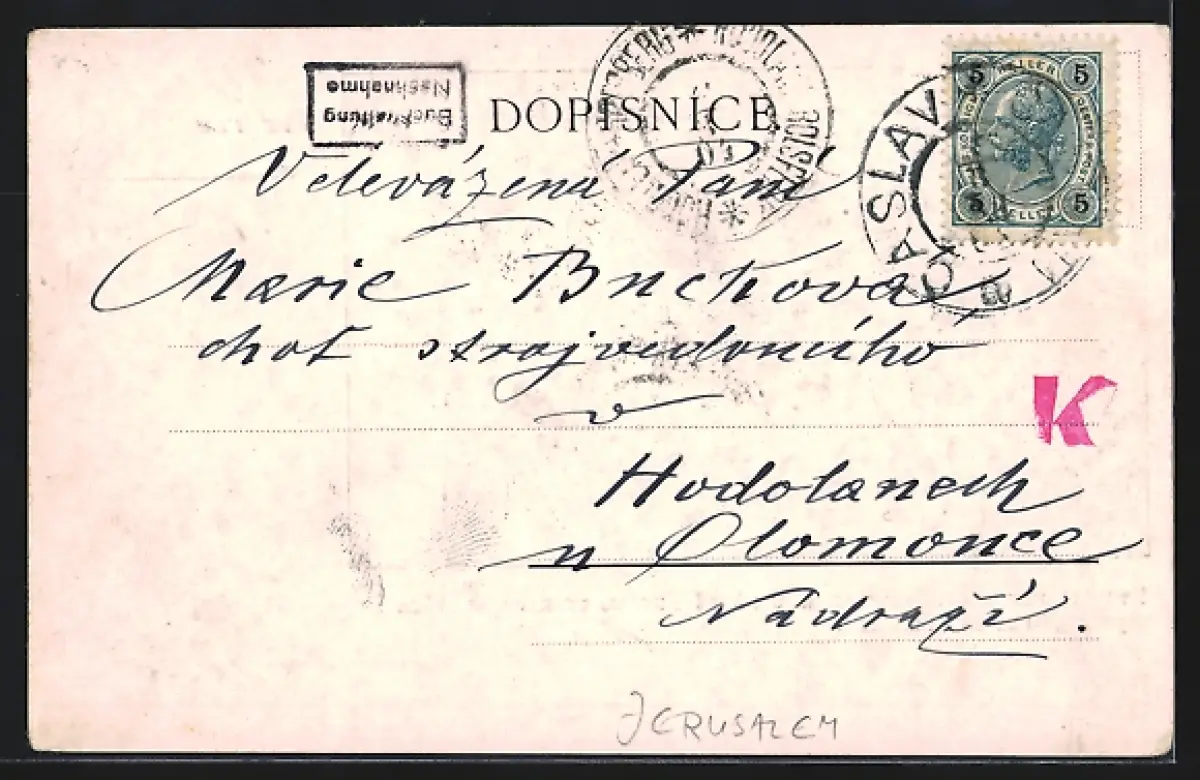 Buchhaltung
Nachnahme
DOPISNICE
5 HELLER 5
5 HELLER 5
ČASLAV
Velevážená Paní
Marie Bučková
choť strojvedoucího
v
K
Hodolanech
u Olomouce
Nádraží.
JERUSALEM